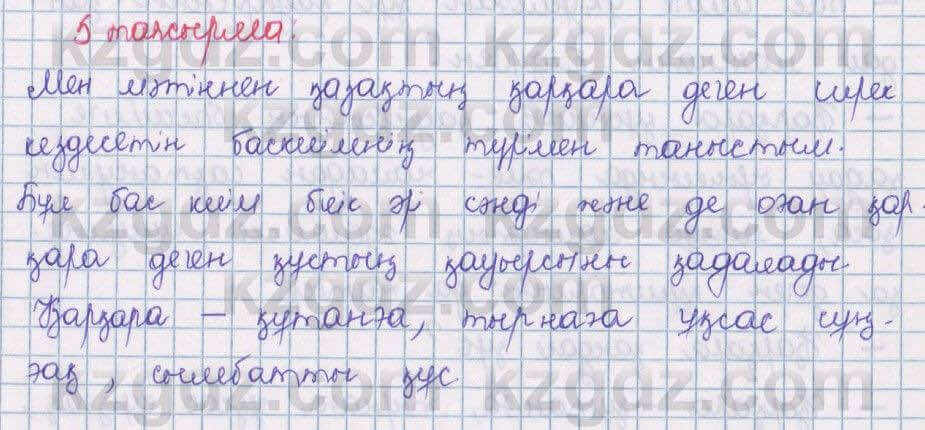 5 тапсырма.
Мен мәтіннен қазақтың қарқара деген сирек
кездесетін баскиімнің түрмен таныстым.
Бұл бас киім биік әрі сәнді және де оған қар-
қара деген құстың қауырсыны қадалады
Қарқара – құтанға, тырнаға ұқсас сұң-
ғақ, сымбатты құс
kzgdz.com